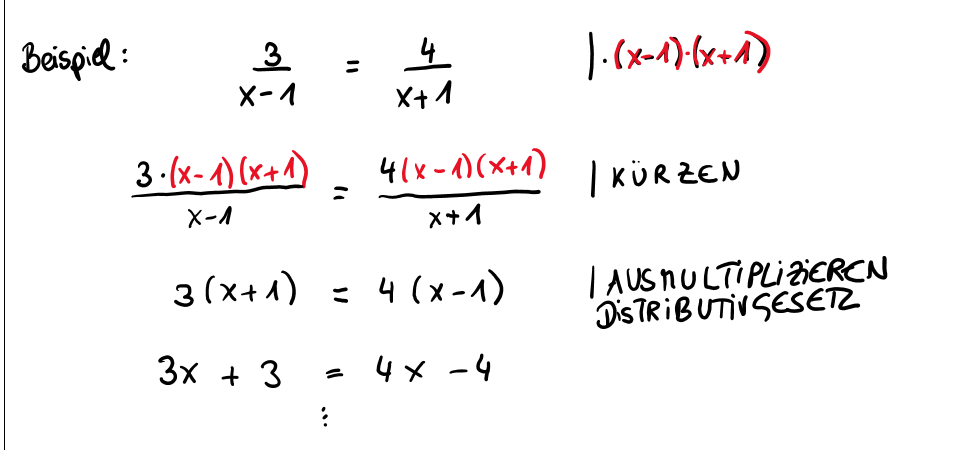 Beispiel: 3/(x-1) = 4/(x+1) | ·(x-1)·(x+1)
3·(x-1)(x+1)/(x-1) = 4(x-1)(x+1)/(x+1) | KÜRZEN
3(x+1) = 4(x-1) | AUSMULTIPLIZIEREN
DISTRIBUTIVGESETZ
3x + 3 = 4x - 4
⋮